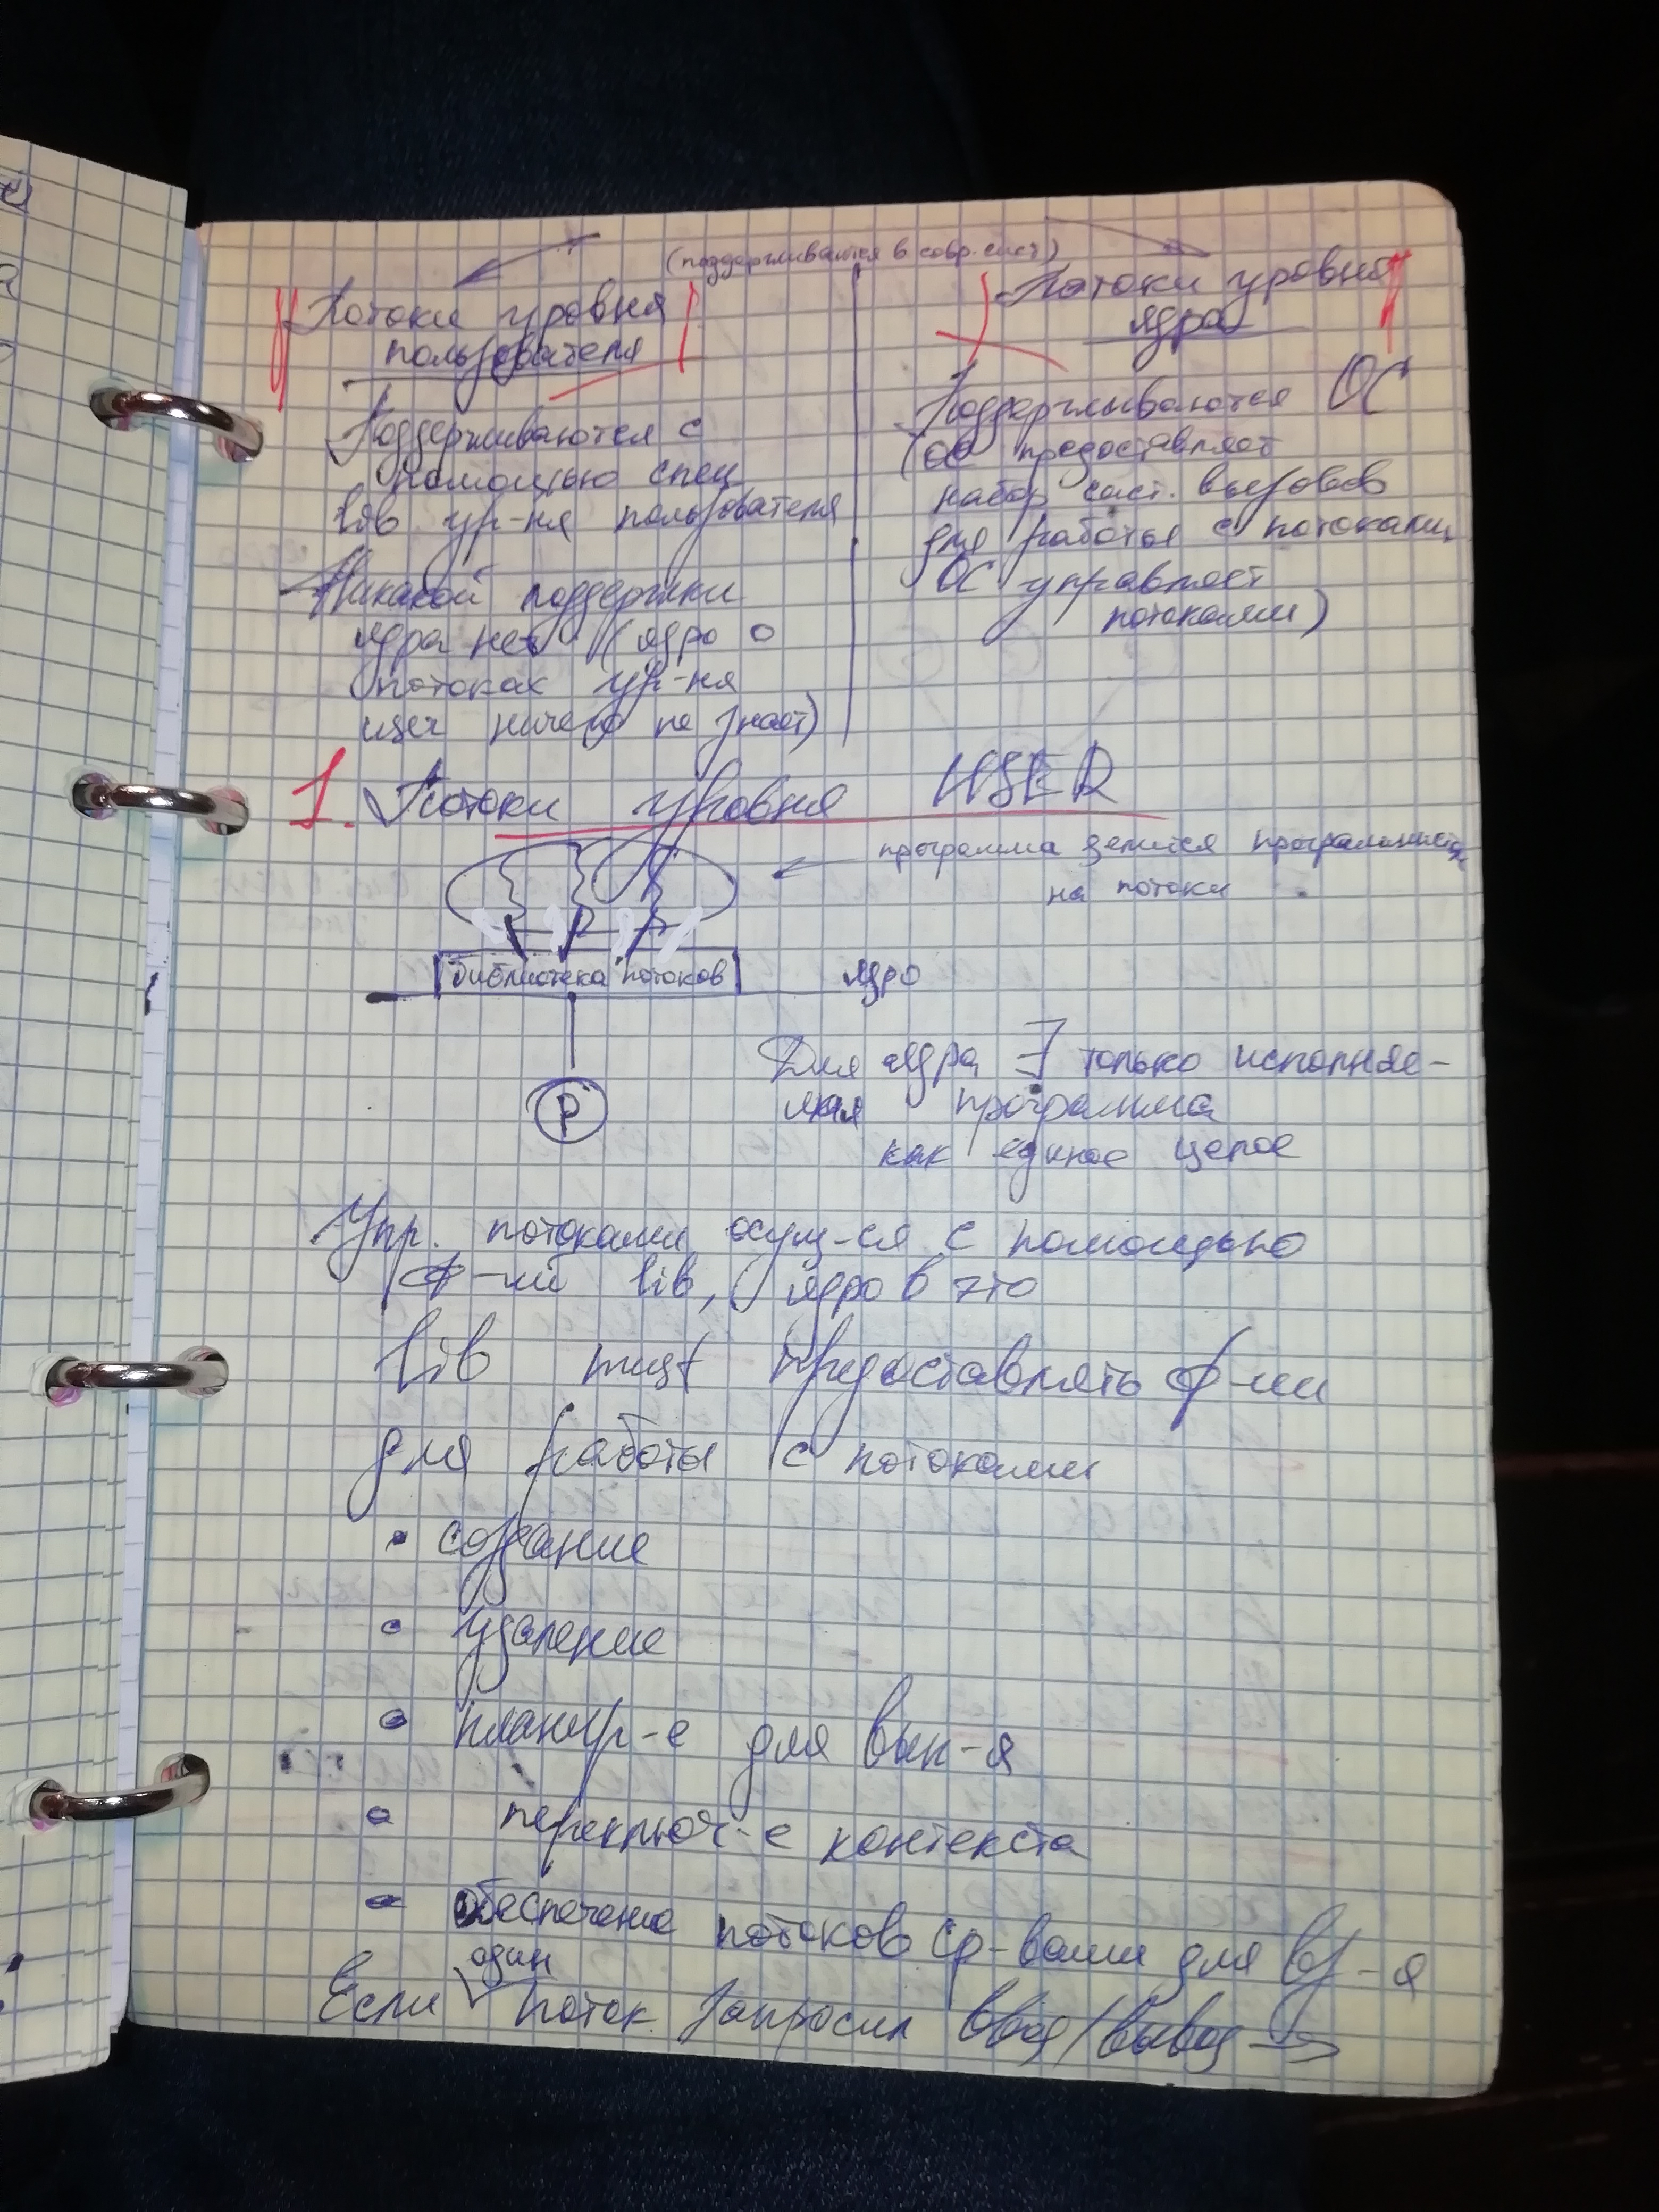 (поддерживаются в совр. сист)
Потоки уровня
пользователя
Поддерживаются с
помощью спец
lib ур-ня пользователя
Никакой поддержки
ядра нет (ядро о
потоках ур-ня
ничего не знает)
Потоки уровня
ядра
Поддерживаются ОС
(ОС предоставляет
набор сист. вызовов
для работы с потоками,
ОС управляет
потоками)
1. Потоки уровня USER
программа делится программистом
на потоки
библиотека потоков
ядро
P
Для ядра ∃ только исполняе-
мая программа
как единое целое
Упр. потоками осущ-ся с помощью
ф-ий lib, ядро в это
lib must предоставлять ф-ии
для работы с потоками
• создание
• удаление
• планир-е для вып-я
• переключ-е контекста
• обеспечение потоков ср-вами для вз-я
один
Если поток запросил ввод/вывод →